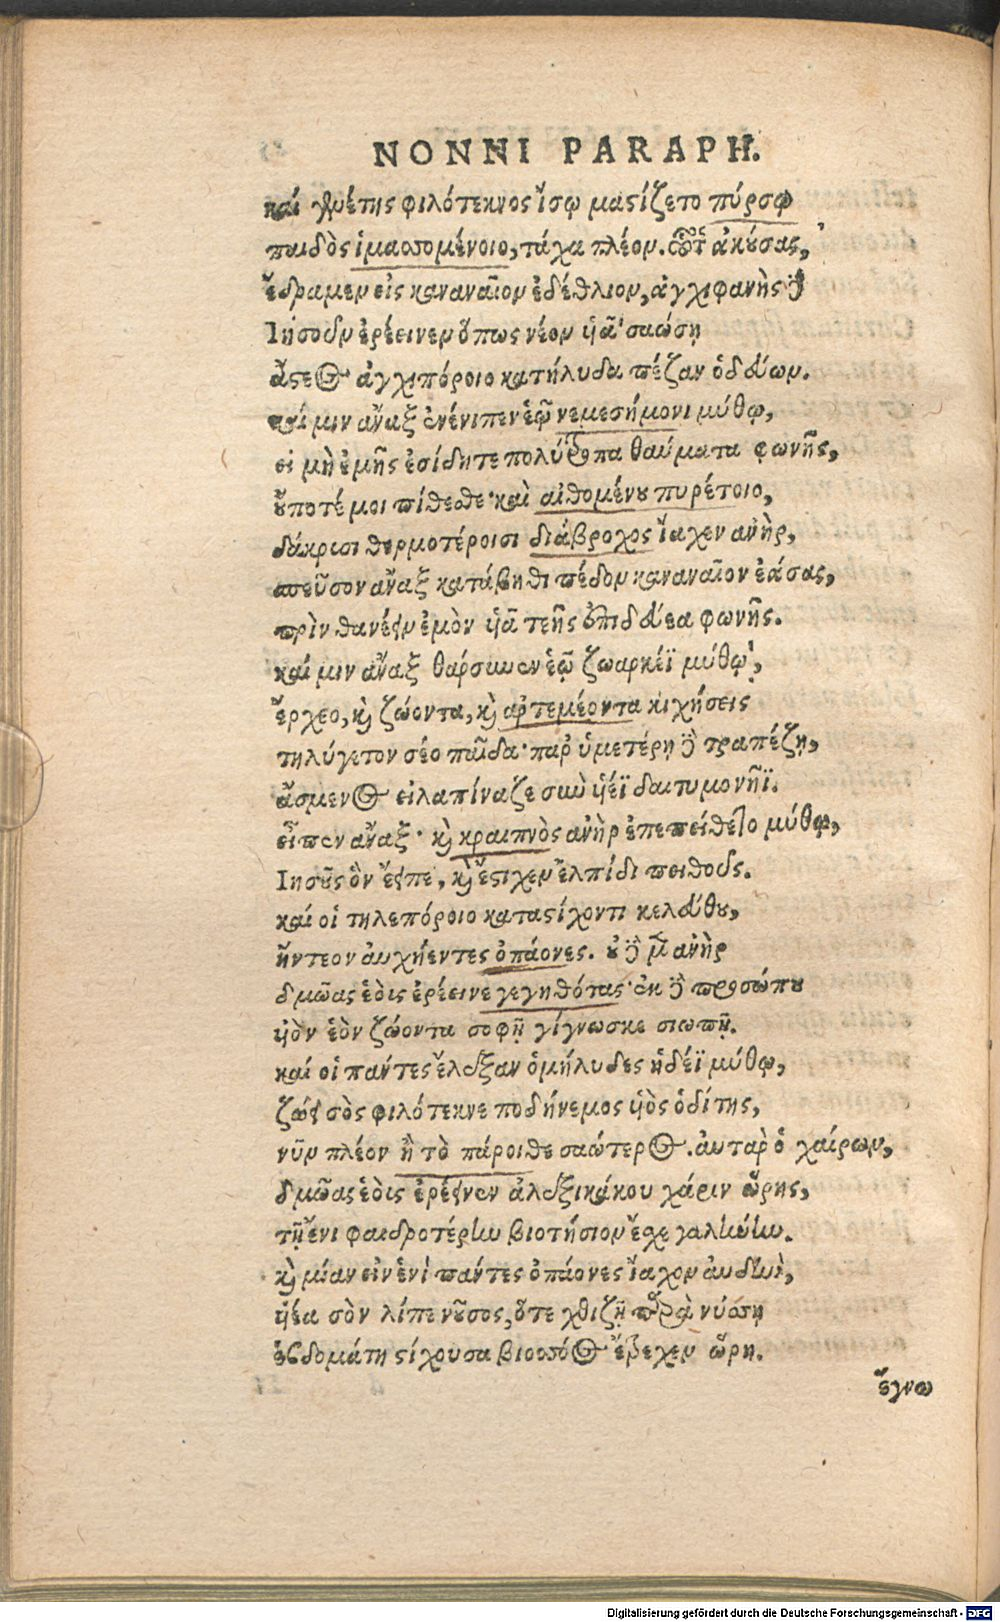 NONNI PARAPH.
καὶ γενέτης φιλότεκνος ἴσῳ μαστίζετο πύρσῳ
παιδὸς ἱμασσομένοιο, τάχα πλέον. οὗτος ἀκούσας,
ἔδραμεν εἰς καναναῖον ἐδέθλιον, ἀγχιφανὴς δὲ
Ιησοῦν ἐρέεινεν ὅπως νέον υἷα σαώσῃ
ἄστεος ἀγχιπόροιο κατήλυδα πέζαν ὁδεύων.
καί μιν ἄναξ ἐνένιπεν ἑῷ νεμεσήμονι μύθῳ,
εἰ μὴ ἐμῆς ἐσίδητε πολύτροπα θαύματα φωνῆς,
οὔποτέ μοι πίθεσθε· καὶ αἰθομένου πυρέτοιο,
δάκρισι θερμοτέροισι διάβροχος ἴαχεν ἀνὴρ,
σπεῦσον ἄναξ κατάβηθι πέδον καναναῖον ἐάσας,
πρὶν θανέειν ἐμὸν υἷα τεῆς ἐπιδευέα φωνῆς.
καί μιν ἄναξ θάρσυνεν ἑῷ ζωαρκέϊ μύθῳ,
ἔρχεο, καὶ ζώοντα, καὶ ἀρτεμέοντα κιχήσεις
τηλύγετον σέο παῖδα· παρ' ὑμετέρῃ δὲ τραπέζῃ,
ἄσμενος εἰλαπίναζε σὺν υἱέϊ δαιτυμονῆϊ.
εἶπεν ἄναξ· καὶ κραιπνὸς ἀνὴρ ἐπεπείθετο μύθῳ,
Ιησοῦς ὃν ἔειπε, καὶ ἔστιχεν ἐλπίδι πειθοῦς.
καί οἱ τηλεπόροιο καταστίχοντι κελεύθου,
ἤντεον αὐχήεντες ὀπάονες. οὐ δὲ μὲν ἀνὴρ
δμῶας ἑοὺς ἐρέεινε γεγηθότας· ἐκ δὲ προσώπου
υἱὸν ἑὸν ζώοντα σοφῇ γίγνωσκε σιωπῇ.
καί οἱ πάντες ἔλεξαν ὁμήλυδες ἡδέϊ μύθῳ,
ζώει σὸς φιλότεκνε ποδήνεμος υἱὸς ὁδίτης,
νῦν πλέον ἢ τὸ πάροιθε σαώτερος. αὐταρ ὁ χαίρων,
δμῶας ἑοὺς ἐρέεινεν ἀλεξικάκου χάριν ὥρης,
τῇ ἔνι φαιδροτέρην βιοτήσιον ἔσχε γαλήνην.
καὶ μίαν εἰν ἑνὶ πάντες ὀπάονες ἴαχον αὐδὴν,
υἱέα σὸν λίπε νοῦσος, ὅτε χθιζῇ παρὰ νύσσῃ
ἑβδομάτη στίχουσα βιοσσόος ἔτρεχεν ὥρη.
ἔγνω
Digitalisierung gefördert durch die Deutsche Forschungsgemeinschaft - DFG